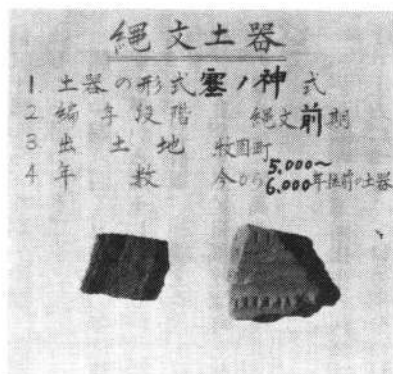 縄文土器
1. 土器の形式 塞ノ神 式
2 編年段階 縄文前期
3. 出土地 牧園町
4 年数 今から5.000〜6.000年位前の土器